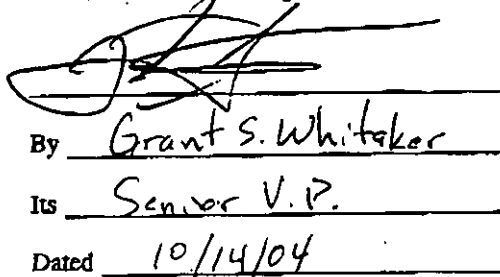 By Grant S. Whitaker
Its Senior V.P.
Dated 10/14/04